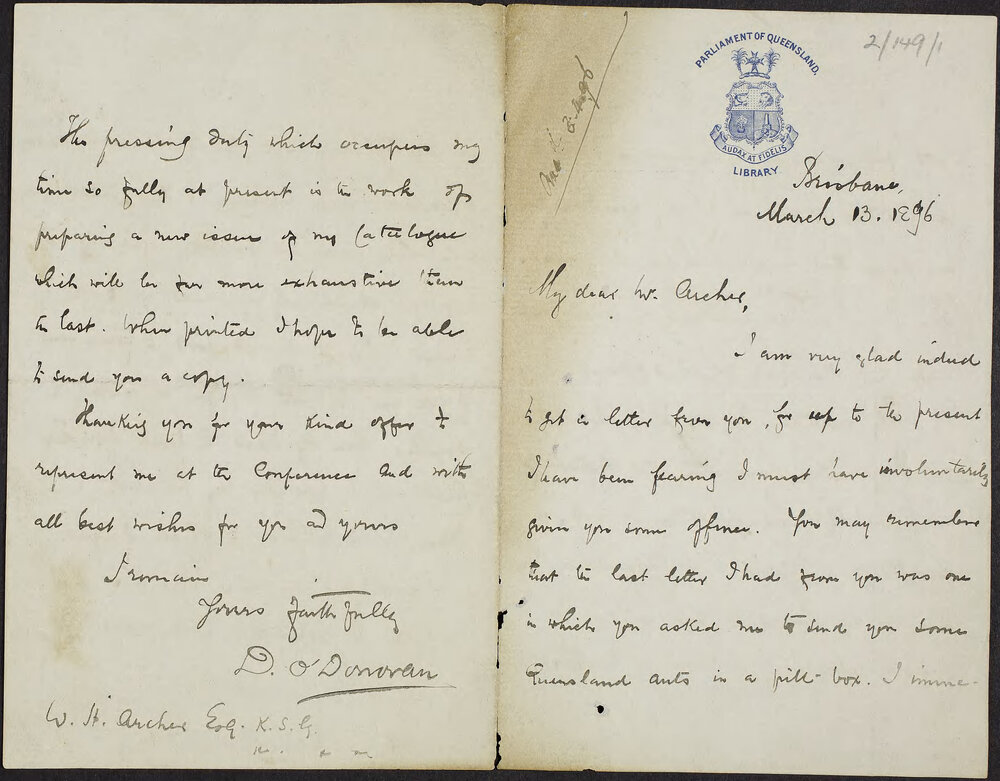 2/149/1
PARLIAMENT OF QUEENSLAND.
AUDAX AT FIDELIS
LIBRARY
Brisbane,
March 13. 1896
My dear Mr. Archer,
I am very glad indeed
to get a letter from you, for up to the present
I have been fearing I must have involuntarily
given you some offence. You may remember
that the last letter I had from you was one
in which you asked me to send you some
Queensland ants in a pill-box. I imme-
The pressing duty which occupies my
time so fully at present is the work of
preparing a new issue of my Catalogue
which will be far more exhaustive than
the last. When printed I hope to be able
to send you a copy.
Thanking you for your kind offer to
represent me at the Conference and with
all best wishes for you and yours
I remain
Yours faithfully
D. O'Donovan
W. H. Archer Esq. K.S.G.